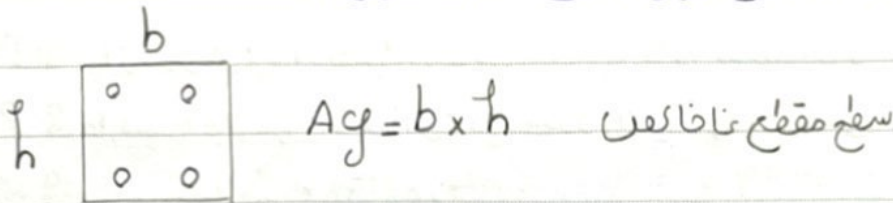 b
h
Ag = b x h سطح مقطع ناخالص